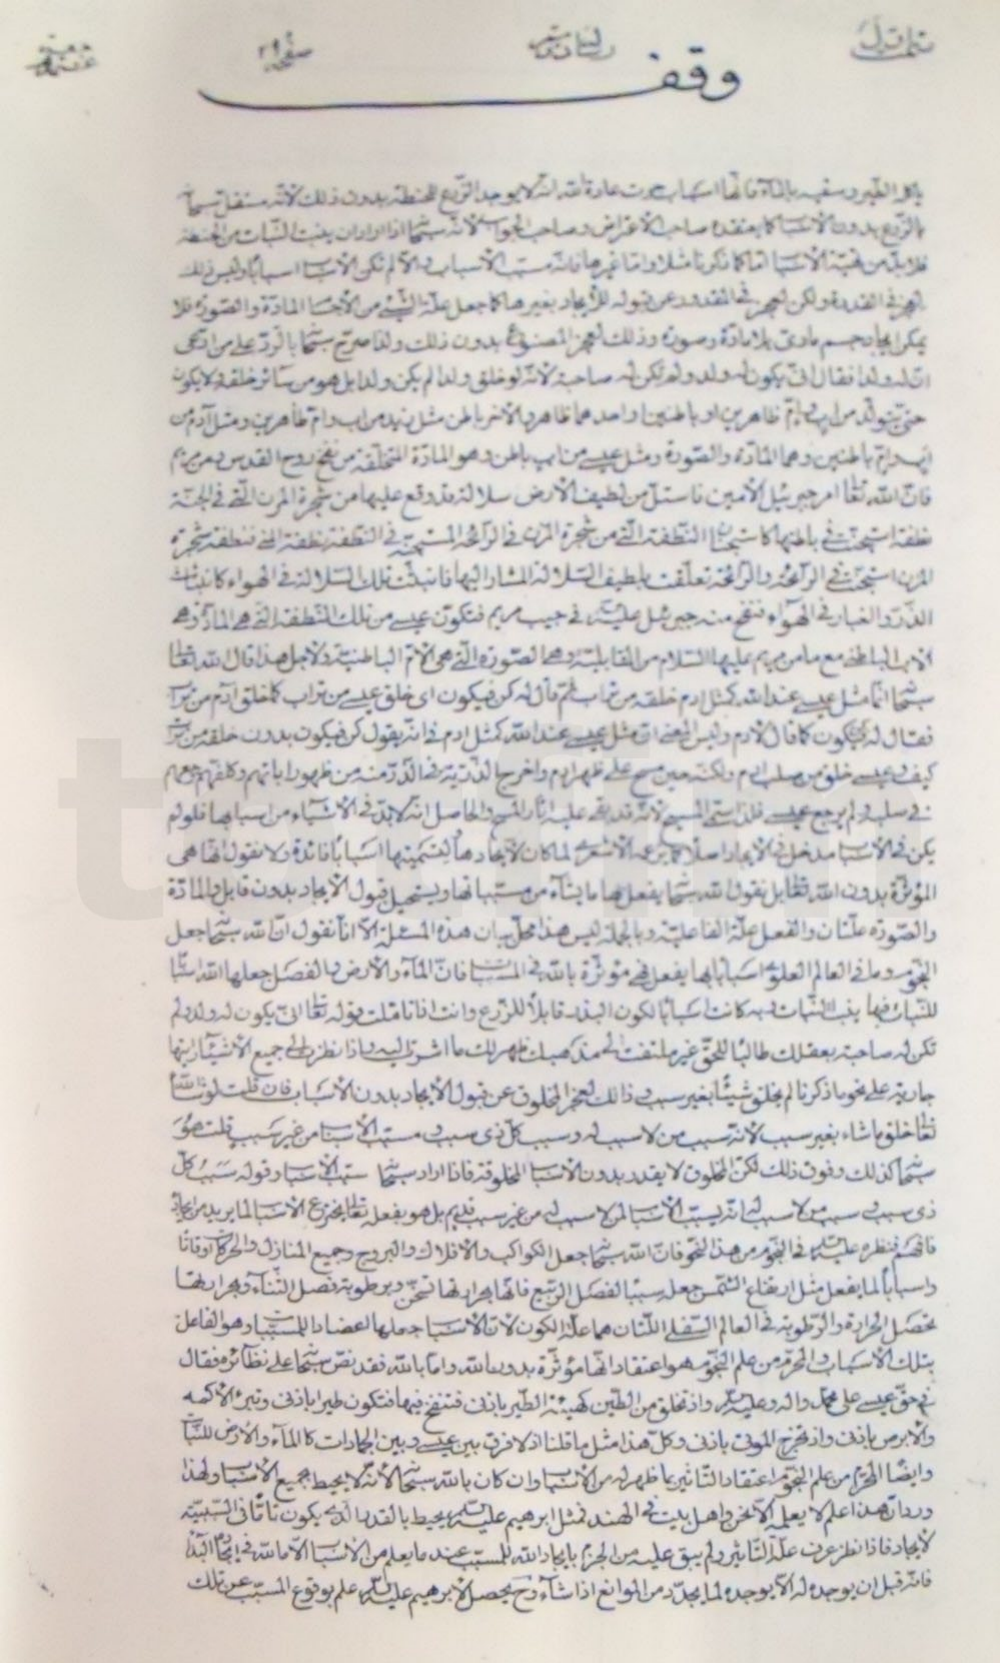 وقف
يأكل الطير وسقيه بالماء فانها اسباب جرت عادة الله انه لا يوجد الزرع للحنطة بدون ذلك لانه
بالزرع بدون الاسباب كما يعتقده صاحب الاعراض وصاحب لانه سبحانه اذا اراد ان ينبت النبات من الحنطة
فلا بد من الاسباب اما كما ذكرنا مثلا واما غيرها فانه مسبب الاسباب والا لم تكن الاسباب اسبابا وليس ذلك
لعجز في القدرة ولكن لعجز في المقدور عن قبوله للايجاد بغيرها كما جعل علة الشيء من الاجسام المادة والصورة فلا
يمكن ايجاد جسم مادي بلا مادة وصورة وذلك لعجز المصنوع بدون ذلك ولذا صرح سبحانه بالرد على من ادعى
ان له ولدا فقال انى يكون له ولد ولم تكن له صاحبة لانه لو خلق ولدا لم يكن ولدا بل هو من سائر خلقه لا يكون
حتى يتولد من اب وام ظاهرين او باطنين او احدهما ظاهر والاخر باطن مثل زيد من اب وام ظاهرين ومثل آدم من
اب وام باطنين وهما المادة والصورة ومثل عيسى من اب باطن وهو المادة المتخلقة من نفخ روح القدس ومن مريم
فان الله تعالى امر جبرئيل الامين فاستل من لطيف الارض سلالة قد وقع عليها من شجرة المزن التي في الجنة
نطفة استجنت في باطنها كما استجنت النطفة التي من شجرة المزن في الرائحة المشمومة في النطفة نطفة التي فنطفة شجرة
المزن استجنت في الرائحة والرائحة تعلقت بلطيف السلالة المشار اليها فانبثت تلك السلالة في الهواء كانبثاث
الذر والغبار في الهواء فنفخ منه جبرئيل عليه السلام في جيب مريم فتكون عيسى من تلك النطفة التي هي المادة وهي
الاب الباطني مع ما من مريم عليها السلام من القابلية وهي الصورة التي هي الام الباطنية ولاجل هذا قال الله تعالى
سبحانه انما مثل عيسى عند الله كمثل ادم خلقه من تراب ثم قال له كن فيكون اي خلق عيسى من تراب كما خلق ادم من تراب
فقال له كن فيكون كما قال لادم وليس المعنى ان مثل عيسى عند الله كمثل ادم في انه يقول كن فيكون بدون خلقه من تراب
كيف وعيسى خلق من صلب ادم ولكنه حين مسح على ظهر ادم واخرج الذرية في الذر منه من ظهور ابائهم وكلفهم
في صلبه ولم يرجع عيسى فلذا سمي المسيح لانه قد بقي عليه اثار المسح والحاصل انه لا بد في الاشياء من اسبابها فلو لم
يكن في الاسباب مدخل في الايجاد اصلا كما يزعمه الاشعري لما كان لايجادها لتسميتها اسبابا فائدة ولا نقول انها هي
المؤثرة بدون الله تعالى بل نقول الله سبحانه يفعل بها ما يشاء من مسبباتها ويستحيل قبول الايجاد بدون قابل والمادة
والصورة علتان والفعل علة الفاعلية وبالجملة ليس هذا محل بيان هذه المسئلة الا انا نقول ان الله سبحانه جعل
النجوم وما في العالم العلوي اسبابا بها يفعل فهي مؤثرة بالله في المسببات فان الماء والارض والفصل جعلها الله اسبابا
للنبات فبها ينبت النبات كانت اسبابا لكون البذر قابلا للزرع وانت اذا تاملت قوله تعالى انى يكون له ولد ولم
تكن له صاحبة بعقلك طالبا للحق غير ملتفت الى مذهبك ظهر لك ما اشرنا اليه واذا نظرت الى جميع الاشياء رايتها
جارية على نحو ما ذكرنا لم يخلق شيئا بغير سبب وذلك لعجز المخلوق عن قبول الايجاد بدون الاسباب فان قلت لو شاء الله
تعالى خلق ما شاء بغير سبب لانه سبب من لا سبب له وسبب كل ذي سبب ومسبب الاسباب من غير سبب قلت هو
سبحانه كذلك وفوق ذلك لكن المخلوق لا يقدر بدون الاسباب المخلوقة فاذا اراد سبحانه سبب الاسباب وقوله سبب كل
ذي سبب وسبب من لا سبب له انه يسبب الاسباب لمن لا سبب له من غير سبب قديم بل هو بفعله تعالى يخترع الاسباب لما يريد من ايجاد
فافهم فنظره عليه السلام في النجوم من هذا النحو فان الله سبحانه جعل الكواكب والافلاك والبروج وجميع المنازل والحركات اوقاتا
واسبابا لما يفعل مثل ارتفاع الشمس جعله سببا لفصل الربيع فانها بحرارتها تسخن وبرطوبة فصل الشتاء وبحرارتها
تحصل الحرارة والرطوبة في العالم السفلي اللتان هما علة الكون لان الاسباب جعلها اعضادا للمسببات وهو الفاعل
بتلك الاسباب والمحرم من علم النجوم هو اعتقاد انها مؤثرة بدون الله واما بالله فقد نص سبحانه على نظائره فقال
في حق عيسى على محمد واله وعليه السلام واذ تخلق من الطين كهيئة الطير باذني فتنفخ فيها فتكون طيرا باذني وتبرئ الاكمه
والابرص باذني واذ تخرج الموتى باذني وكل هذا مثل ما قلنا اذ لا فرق بين عيسى وبين الجمادات كالماء والارض للنبات
وايضا المحرم من علم النجوم اعتقاد التاثير بما ظهر له من الاسباب وان كان بالله سبحانه لانه لا يحيط بجميع الاسباب ولهذا
ورد ان هذا علم لا يعلمه الا نحن واهل بيت في الهند فمثل ابرهيم عليه السلام يحيط بالقدر الذي يكون تاما في السببية
لايجاد فاذا نظر عرف علة التاثير ولم يبق عليه من الجزم بايجاد الله للمسبب عند ما يعلم من الاسباب الا ما لله فيه البداء
فانه قبل ان يوجده له الا يوجده لما يجدد من الموانع اذا شاء وح يحصل لابرهيم عليه السلام علم بوقوع المسبب عن تلك